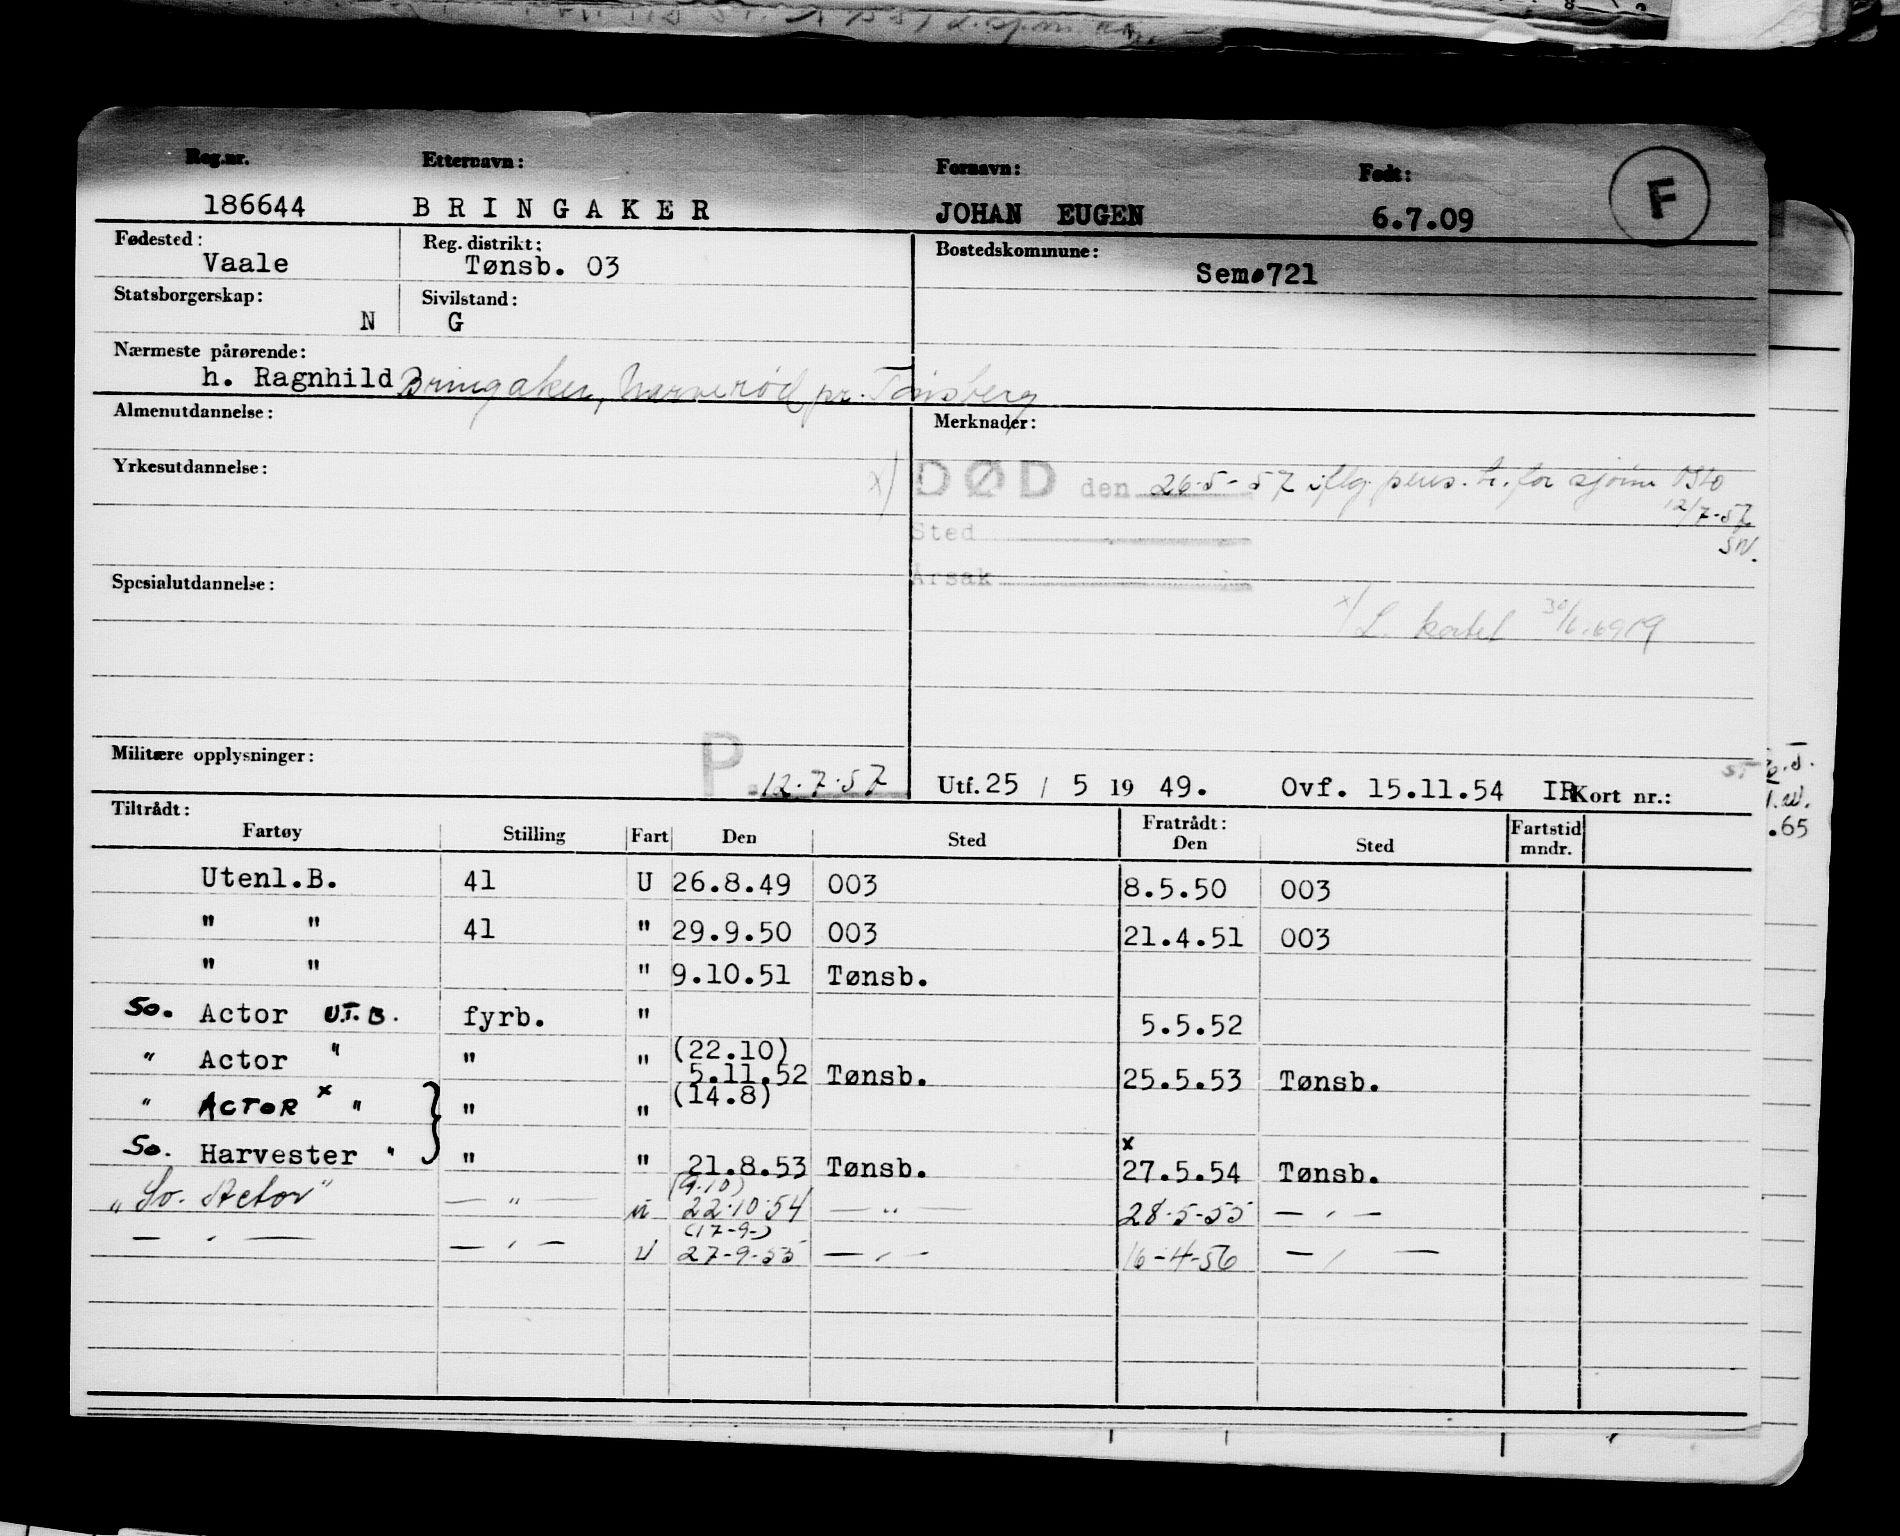 Reg.nr. Etternavn: Fornavn: Født: F
186644 BRINGAKER JOHAN EUGEN 6.7.09
Fødested: Reg. distrikt: Bostedskommune:
Vaale Tønsb. 03 Sem 721
Statsborgerskap: Sivilstand:
N G
Nærmeste pårørende:
h. Ragnhild Bringaker, pr. Tønsberg
Almenutdannelse: Merknader:
Yrkesutdannelse:
x) DØD den 26-5-57 iflg. pens. tr. for sjøm Oslo
12/7-57
SN.
Sted
Årsak
Spesialutdannelse:
x) L. kortet
Militære opplysninger:
P. 12.7.57 Utf. 25 / 5 19 49. Ovf. 15.11.54 IR Kort nr.:
.65
Tiltrådt: Fratrådt:
Fartøy Stilling Fart Den Sted Den Sted Fartstid mndr.
Utenl.B. 41 U 26.8.49 003 8.5.50 003
" " 41 " 29.9.50 003 21.4.51 003
" " " 9.10.51 Tønsb.
So. Actor U.T.B. fyrb. " 5.5.52
" Actor " " " (22.10)
5.11.52 Tønsb. 25.5.53 Tønsb.
" ACTOR x " } " " (14.8)
So. Harvester " " " 21.8.53 Tønsb. x 27.5.54 Tønsb.
(9.10)
"So. Actor" — " — u 22.10.54 — " — 28-5-55 — " —
(17-9-)
— " — — " — U 27-9-55 — " — 16-4-56 — " —